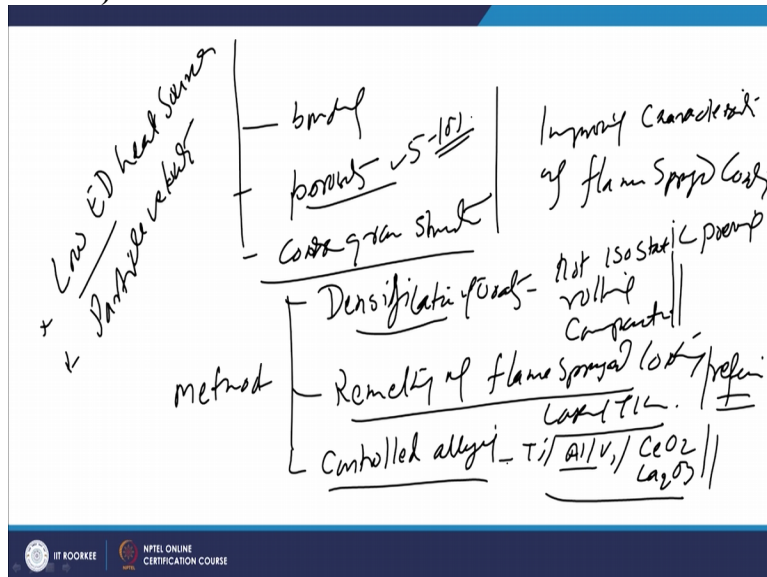 + Low ED heat source
+ Particle velocity
- bonding
- porosity ~ 5-10%.
- coarse grain struct
Improving Characteristi
of flame Sprayed Coatg
method
- Densification of Coat - Hot isostatic pressing
rolling
Compaction
- Remelting of flame Sprayed Coating / refin
Laser/TIG.
- Controlled alloying - Ti/Al/V/ CeO2
La2O3
IIT ROORKEE
NPTEL ONLINE
CERTIFICATION COURSE
NPTEL